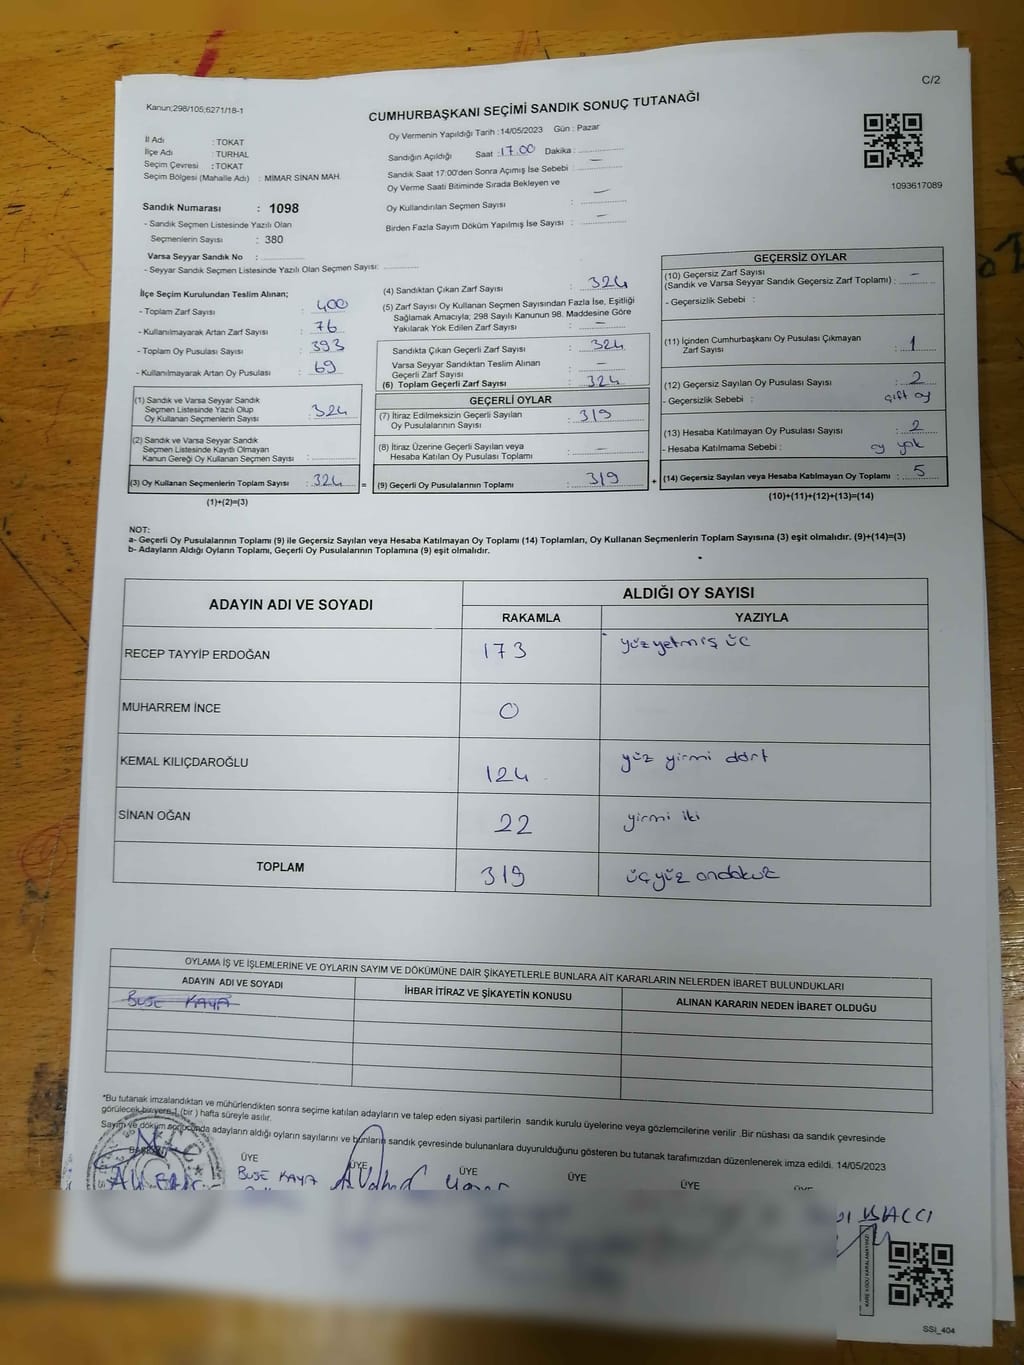 C/2
Kanun;298/105;6271/18-1
CUMHURBAŞKANI SEÇİMİ SANDIK SONUÇ TUTANAĞI
1093617089
İl Adı : TOKAT
İlçe Adı : TURHAL
Seçim Çevresi : TOKAT
Seçim Bölgesi (Mahalle Adı) : MİMAR SİNAN MAH.
Sandık Numarası : 1098
- Sandık Seçmen Listesinde Yazılı Olan
Seçmenlerin Sayısı : 380
Varsa Seyyar Sandık No :
- Seyyar Sandık Seçmen Listesinde Yazılı Olan Seçmen Sayısı:
Oy Vermenin Yapıldığı Tarih :14/05/2023 Gün : Pazar
Sandığın Açıldığı Saat :17.00 Dakika :
Sandık Saat 17:00'den Sonra Açımış İse Sebebi : —
Oy Verme Saati Bitiminde Sırada Bekleyen ve
Oy Kullandırılan Seçmen Sayısı : —
Birden Fazla Sayım Döküm Yapılmış İse Sayısı : —
İlçe Seçim Kurulundan Teslim Alınan;
- Toplam Zarf Sayısı : 400
- Kullanılmayarak Artan Zarf Sayısı : 76
- Toplam Oy Pusulası Sayısı : 393
- Kullanılmayarak Artan Oy Pusulası : 69
(1) Sandık ve Varsa Seyyar Sandık
Seçmen Listesinde Yazılı Olup
Oy Kullanan Seçmenlerin Sayısı : 324
(2) Sandık ve Varsa Seyyar Sandık
Seçmen Listesinde Kayıtlı Olmayan
Kanun Gereği Oy Kullanan Seçmen Sayısı :
(3) Oy Kullanan Seçmenlerin Toplam Sayısı : 324 =
(1)+(2)=(3)
(4) Sandıktan Çıkan Zarf Sayısı : 324
(5) Zarf Sayısı Oy Kullanan Seçmen Sayısından Fazla İse, Eşitliği
Sağlamak Amacıyla; 298 Sayılı Kanunun 98. Maddesine Göre
Yakılarak Yok Edilen Zarf Sayısı : —
Sandıkta Çıkan Geçerli Zarf Sayısı : 324
Varsa Seyyar Sandıktan Teslim Alınan
Geçerli Zarf Sayısı : —
(6) Toplam Geçerli Zarf Sayısı : 324
GEÇERLİ OYLAR
(7) İtiraz Edilmeksizin Geçerli Sayılan
Oy Pusulasının Sayısı : 319
(8) İtiraz Üzerine Geçerli Sayılan veya
Hesaba Katılan Oy Pusulası Toplamı : —
(9) Geçerli Oy Pusulalarının Toplamı : 319 +
GEÇERSİZ OYLAR
(10) Geçersiz Zarf Sayısı
(Sandık ve Varsa Seyyar Sandık Geçersiz Zarf Toplamı) : —
- Geçersizlik Sebebi :
(11) İçinden Cumhurbaşkanı Oy Pusulası Çıkmayan
Zarf Sayısı : 1
(12) Geçersiz Sayılan Oy Pusulası Sayısı : 2
- Geçersizlik Sebebi : çift oy
(13) Hesaba Katılmayan Oy Pusulası Sayısı : 2
- Hesaba Katılmama Sebebi : oy yok
(14) Geçersiz Sayılan veya Hesaba Katılmayan Oy Toplamı : 5
(10)+(11)+(12)+(13)=(14)
NOT:
a- Geçerli Oy Pusulalarının Toplamı (9) ile Geçersiz Sayılan veya Hesaba Katılmayan Oy Toplamı (14) Toplamları, Oy Kullanan Seçmenlerin Toplam Sayısına (3) eşit olmalıdır. (9)+(14)=(3)
b- Adayların Aldığı Oyların Toplamı, Geçerli Oy Pusulalarının Toplamına (9) eşit olmalıdır.
ADAYIN ADI VE SOYADI ALDIĞI OY SAYISI
RAKAMLA YAZIYLA
RECEP TAYYİP ERDOĞAN 173 yüzyetmiş üç
MUHARREM İNCE 0
KEMAL KILIÇDAROĞLU 124 yüz yirmi dört
SİNAN OĞAN 22 yirmi iki
TOPLAM 319 üçyüz ondokuz
OYLAMA İŞ VE İŞLEMLERİNE VE OYLARIN SAYIM VE DÖKÜMÜNE DAİR ŞİKAYETLERLE BUNLARA AİT KARARLARIN NELERDEN İBARET BULUNDUKLARI
ADAYIN ADI VE SOYADI İHBAR İTİRAZ VE ŞİKAYETİN KONUSU ALINAN KARARIN NEDEN İBARET OLDUĞU
BUSE KAYA
*Bu tutanak imzalandıktan ve mühürlendikten sonra seçime katılan adayların ve talep eden siyasi partilerin sandık kurulu üyelerine veya gözlemcilerine verilir .Bir nüshası da sandık çevresinde
görülecek bir yere 1 (bir ) hafta süreyle asılır.
Sayım ve döküm sonucunda adayların aldığı oyların sayılarını ve bunların sandık çevresinde bulunanlara duyurulduğunu gösteren bu tutanak tarafımızdan düzenlenerek imza edildi. 14/05/2023
BAŞKAN ÜYE ÜYE ÜYE ÜYE ÜYE
BUSE KAYA
KARE KODU KARALAMAYINIZ!
SSI_404